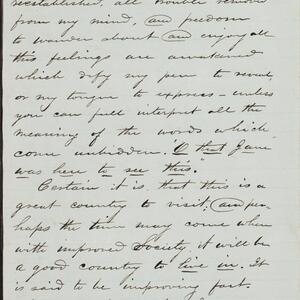 reestablished, all trouble removed
from my mind, and freedom
to wander about and enjoy all
this feelings are awakened
which defy my pen to record,
or my tongue to express - unless
you can full interpret all the
meaning of the words which
come unbidden. "O that Jane
was here to see this."
Certain it is that this is a
great country to visit, and per-
haps the time may come when
with improved Society, it will be
a good country to live in. It
is said to be improving fast.